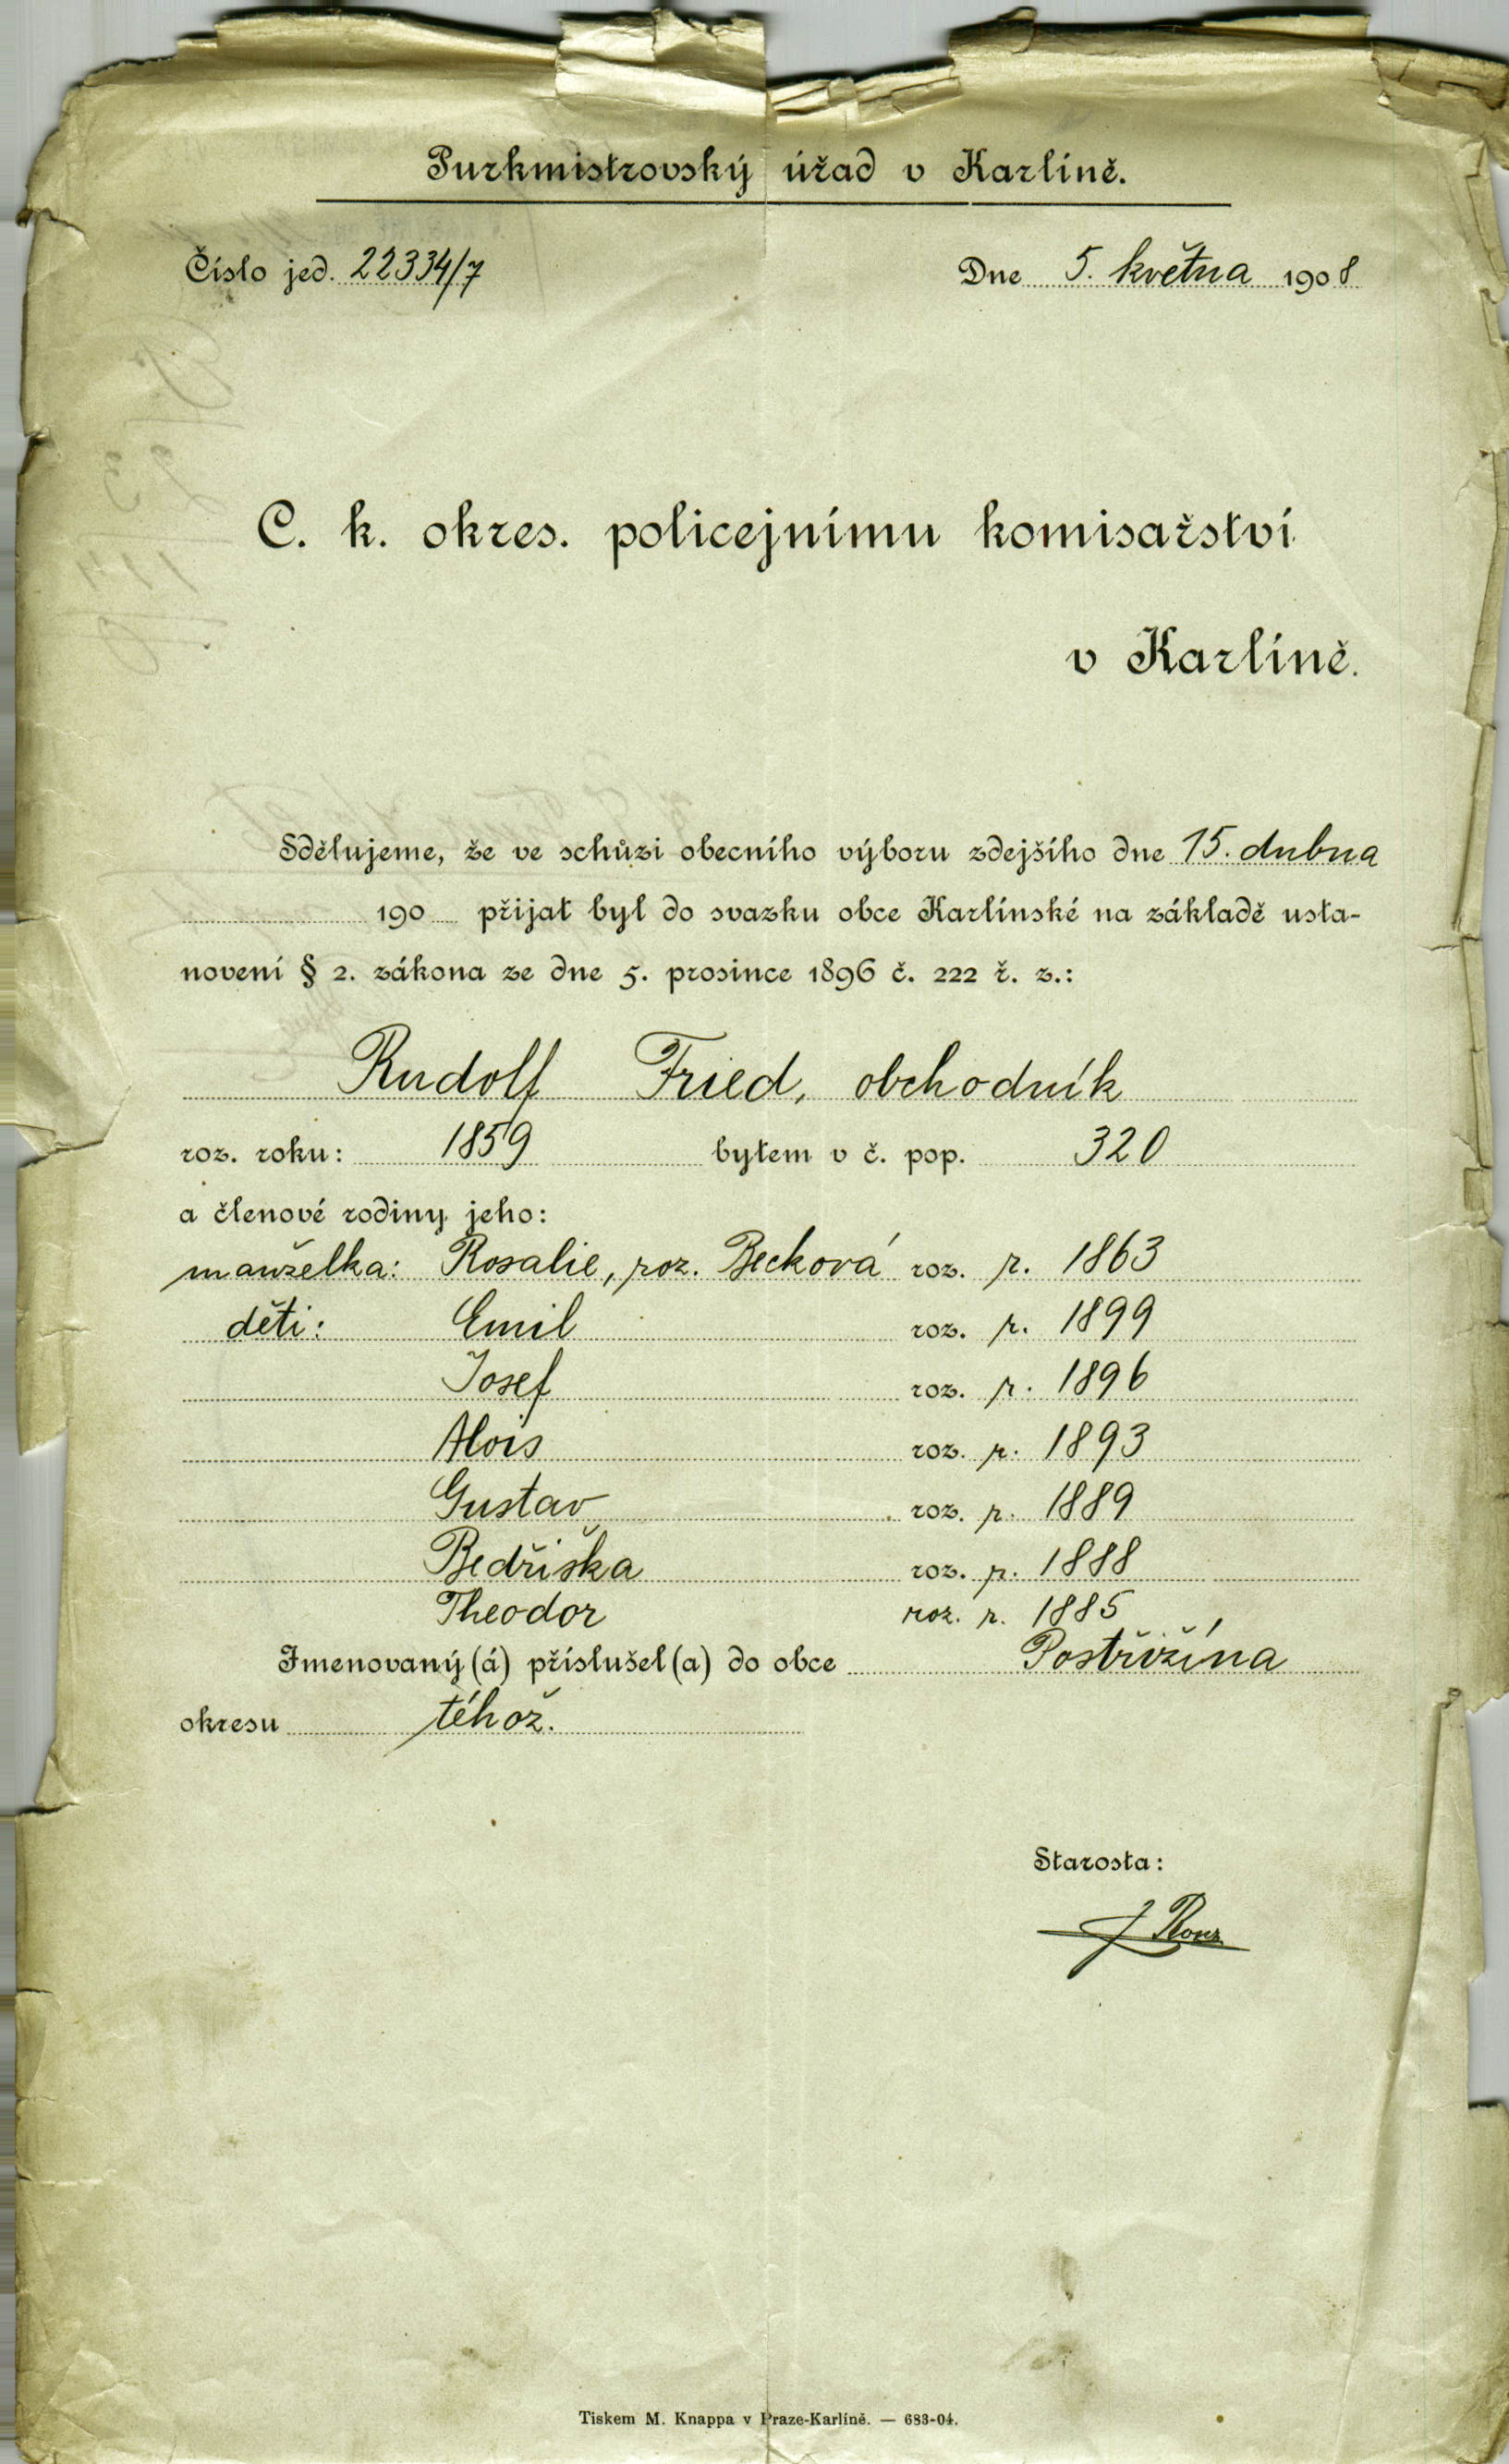 Purkmistrovský úřad v Karlíně.
Číslo jed. 22334/7 Dne 5. května 1908
C. k. okres. policejnímu komisařství
v Karlíně.
Sdělujeme, že ve schůzi obecního výboru zdejšího dne 15. dubna
190 přijat byl do svazku obce Karlínské na základě usta-
novení § 2. zákona ze dne 5. prosince 1896 č. 222 ř. z.:
Rudolf Fried, obchodník
roz. roku: 1859 bytem v č. pop. 320
a členové rodiny jeho:
manželka: Rosalie, roz. Becková roz. r. 1863
děti: Emil roz. r. 1899
Josef roz. r. 1896
Alois roz. r. 1893
Gustav roz. r. 1889
Bedřiška roz. r. 1888
Theodor roz. r. 1885
Jmenovaný(á) příslušel(a) do obce Postřižína
okresu téhož.
Starosta:
Tiskem M. Knappa v Praze-Karlíně. — 683-04.